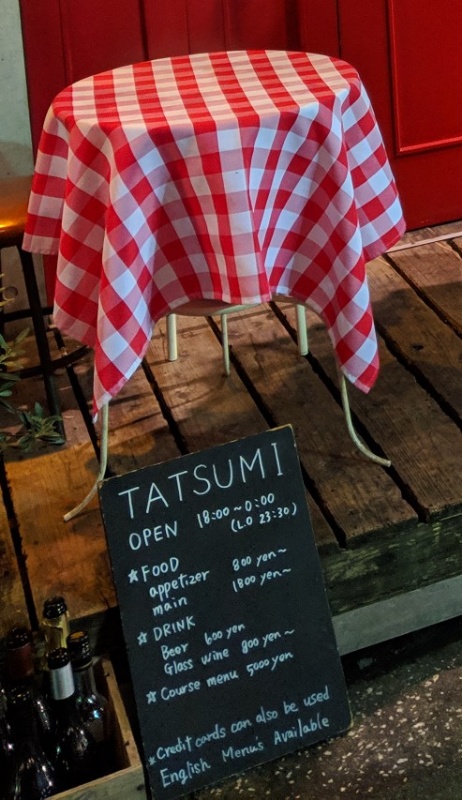 TATSUMI
OPEN 18:00~0:00
(LO 23:30)
☆FOOD
appetizer 800 yen~
main 1800 yen~
☆DRINK
Beer 600 yen
Glass wine 800 yen~
☆Course menu 5000 yen
*Credit cards can also be used
English Menu's Available